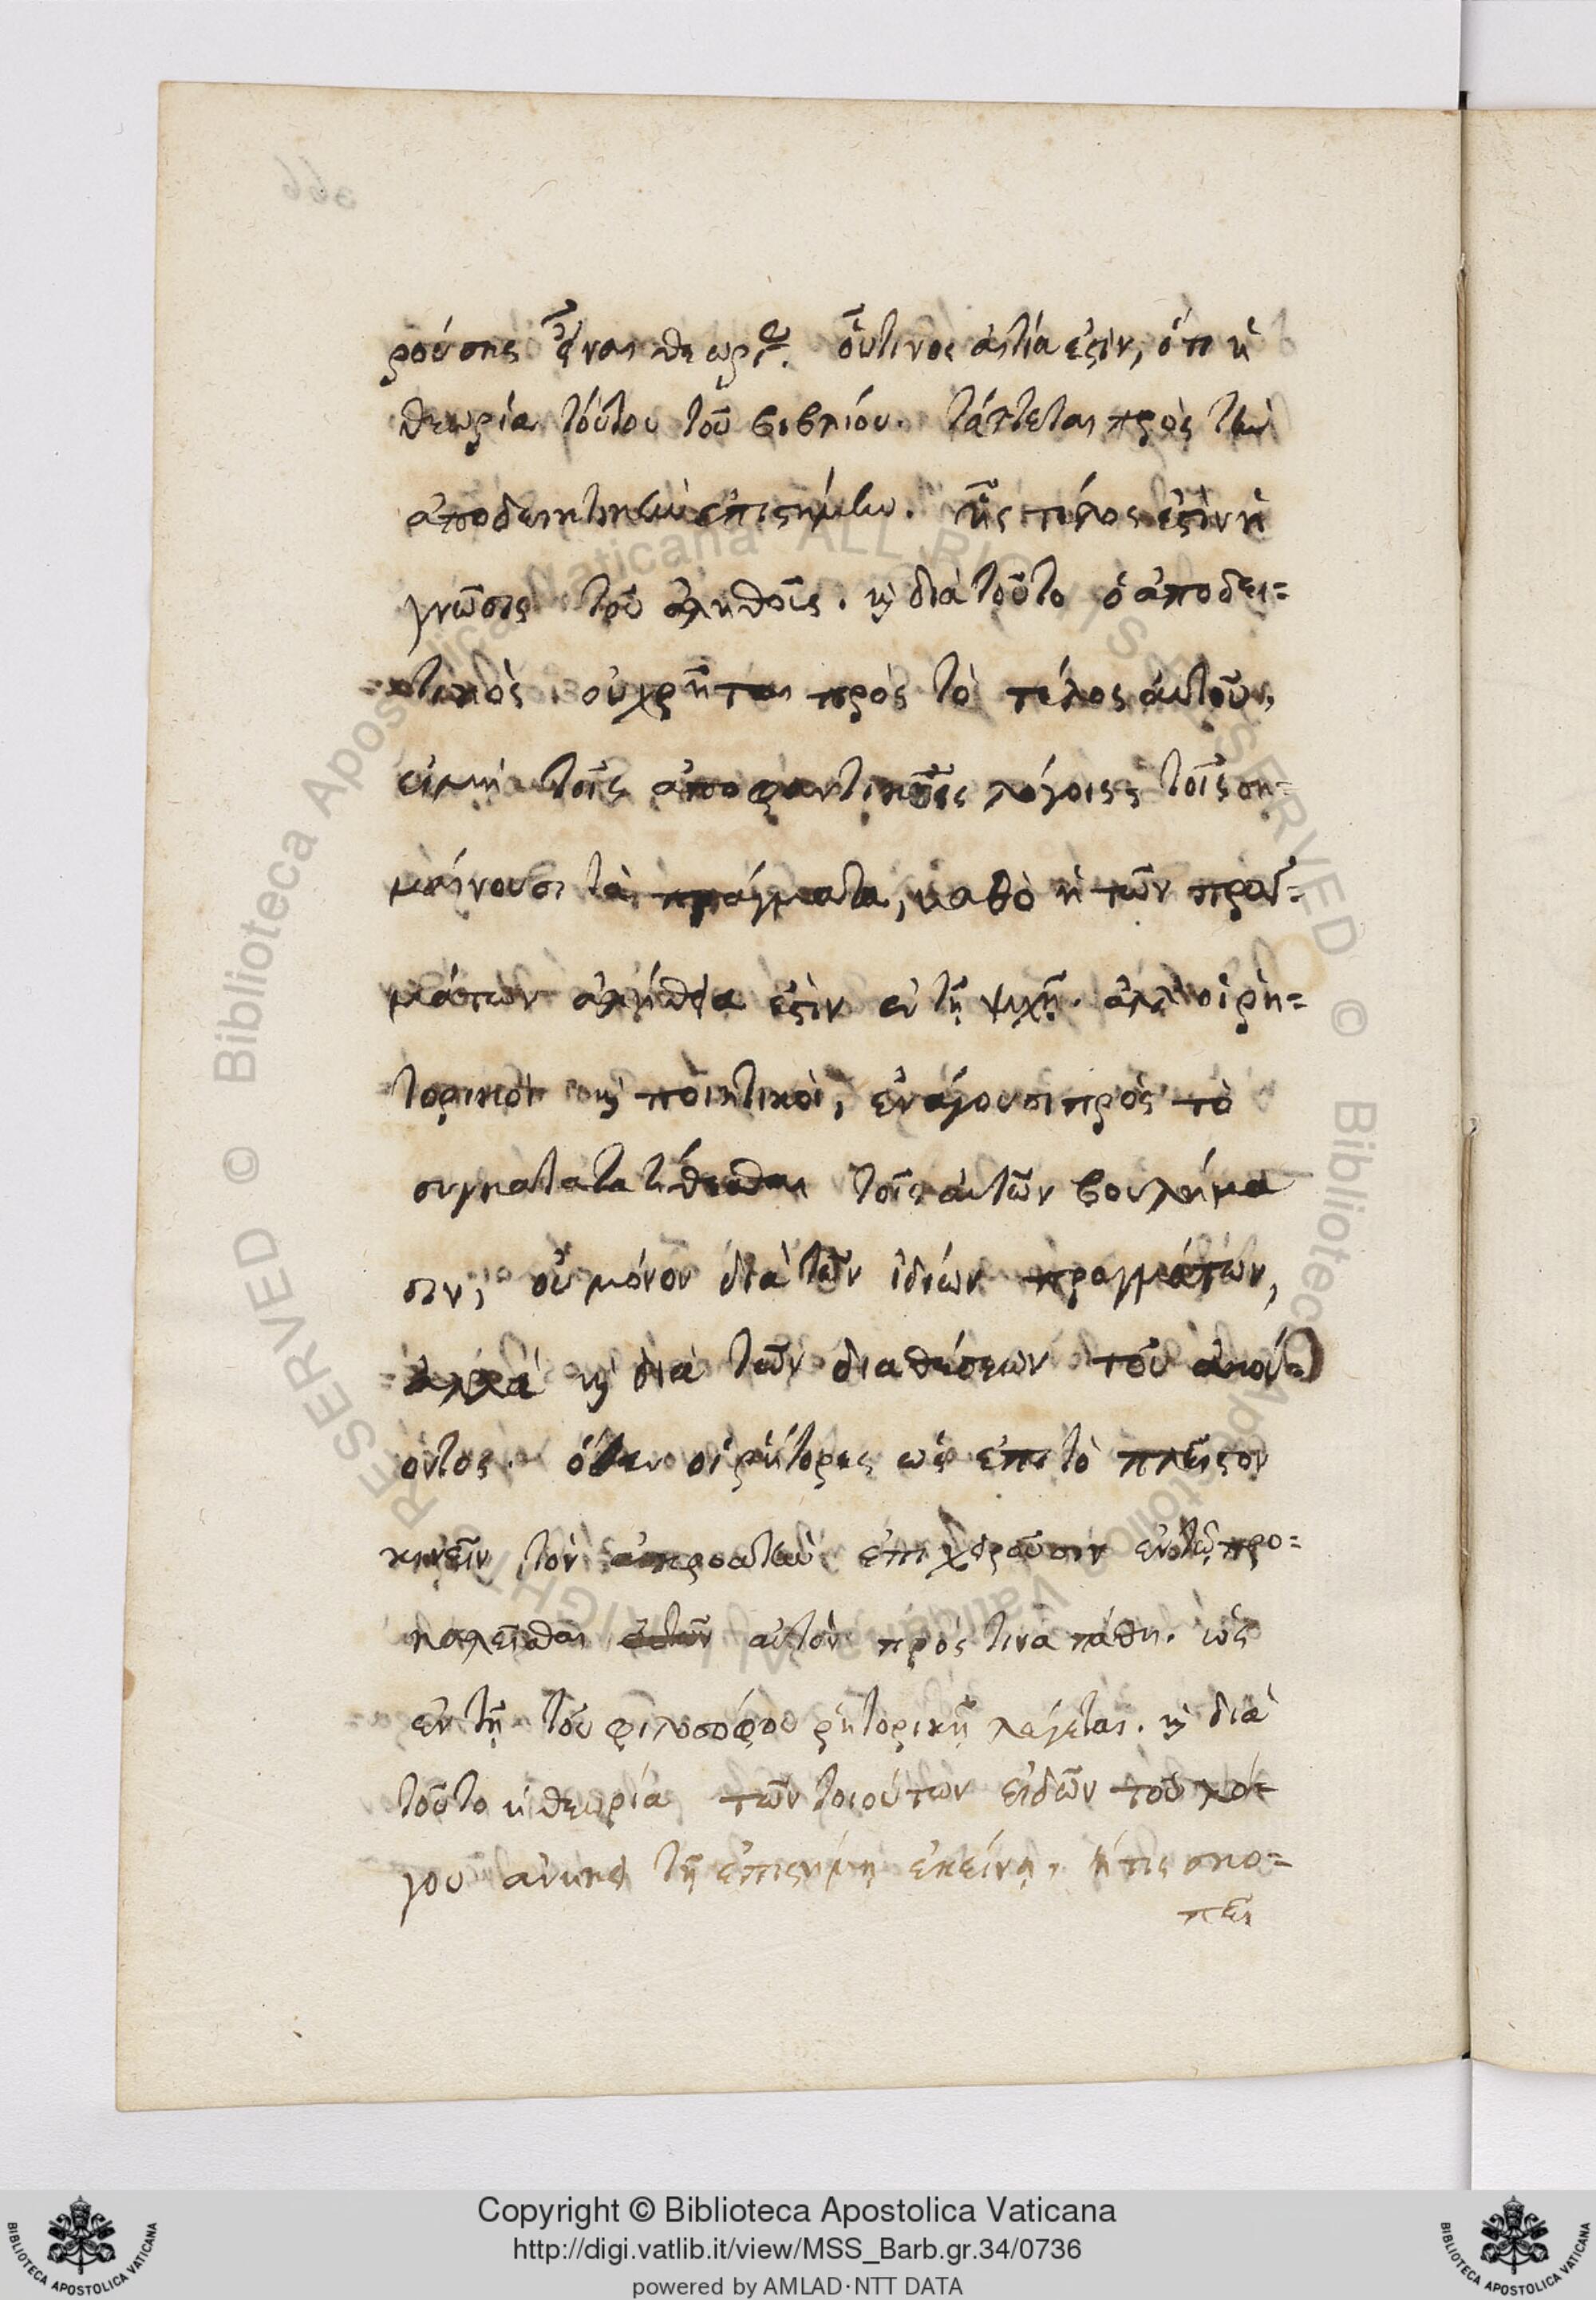 ρούσης εἶναι θεωρίας. οὗτινος αἰτία ἐστὶν, ὅτι ἡ
θεωρία τούτου τοῦ βιβλίου. τάττεται πρὸς τὴν
ἀποδεικτικὴν ἐπιστήμην. ἧς τέλος ἐστὶν ἡ
γνῶσις τοῦ ἀληθοῦς. καὶ διὰ τοῦτο ὁ ἀποδει=
κτικὸς οὐ χρῆται πρὸς τὸ τέλος αὐτοῦ,
εἰ μὴ τοῖς ἀποφαντικοῖς λόγοις τοῖς ση=
μαίνουσι τὰ πράγματα, καθὸ ἡ τῶν πραγ=
μάτων ἀλήθεια ἐστὶν ἐν τῇ ψυχῇ. ἀλλ' οἱ ῥη=
τορικοὶ καὶ ποιητικοὶ, ἐνάγουσι πρὸς τὸ
συγκατατίθεσθαι τοῖς αὐτῶν βουλήμα
σιν, οὐ μόνον διὰ τῶν ἰδίων πραγμάτων,
ἀλλὰ καὶ διὰ τῶν διαθέσεων τοῦ ἀκού=
οντος. ὅθεν οἱ ῥήτορες ὡς ἐπὶ τὸ πλεῖστον
κινεῖν τὸν ἀκροατὴν ἐπιχειροῦσιν ἐν τῷ προ=
καλεῖσθαι αὐτὸν πρός τινα πάθη. ὡς
ἐν τῇ τοῦ φιλοσόφου ῥητορικῇ λέγεται. καὶ διὰ
τοῦτο ἡ θεωρία τῶν τοιούτων εἰδῶν τοῦ λό=
γου ἀνήκει τῇ ἐπιστήμῃ ἐκείνῃ, ἥτις σκο=
πεῖ
Copyright © Biblioteca Apostolica Vaticana
http://digi.vatlib.it/view/MSS_Barb.gr.34/0736
powered by AMLAD·NTT DATA